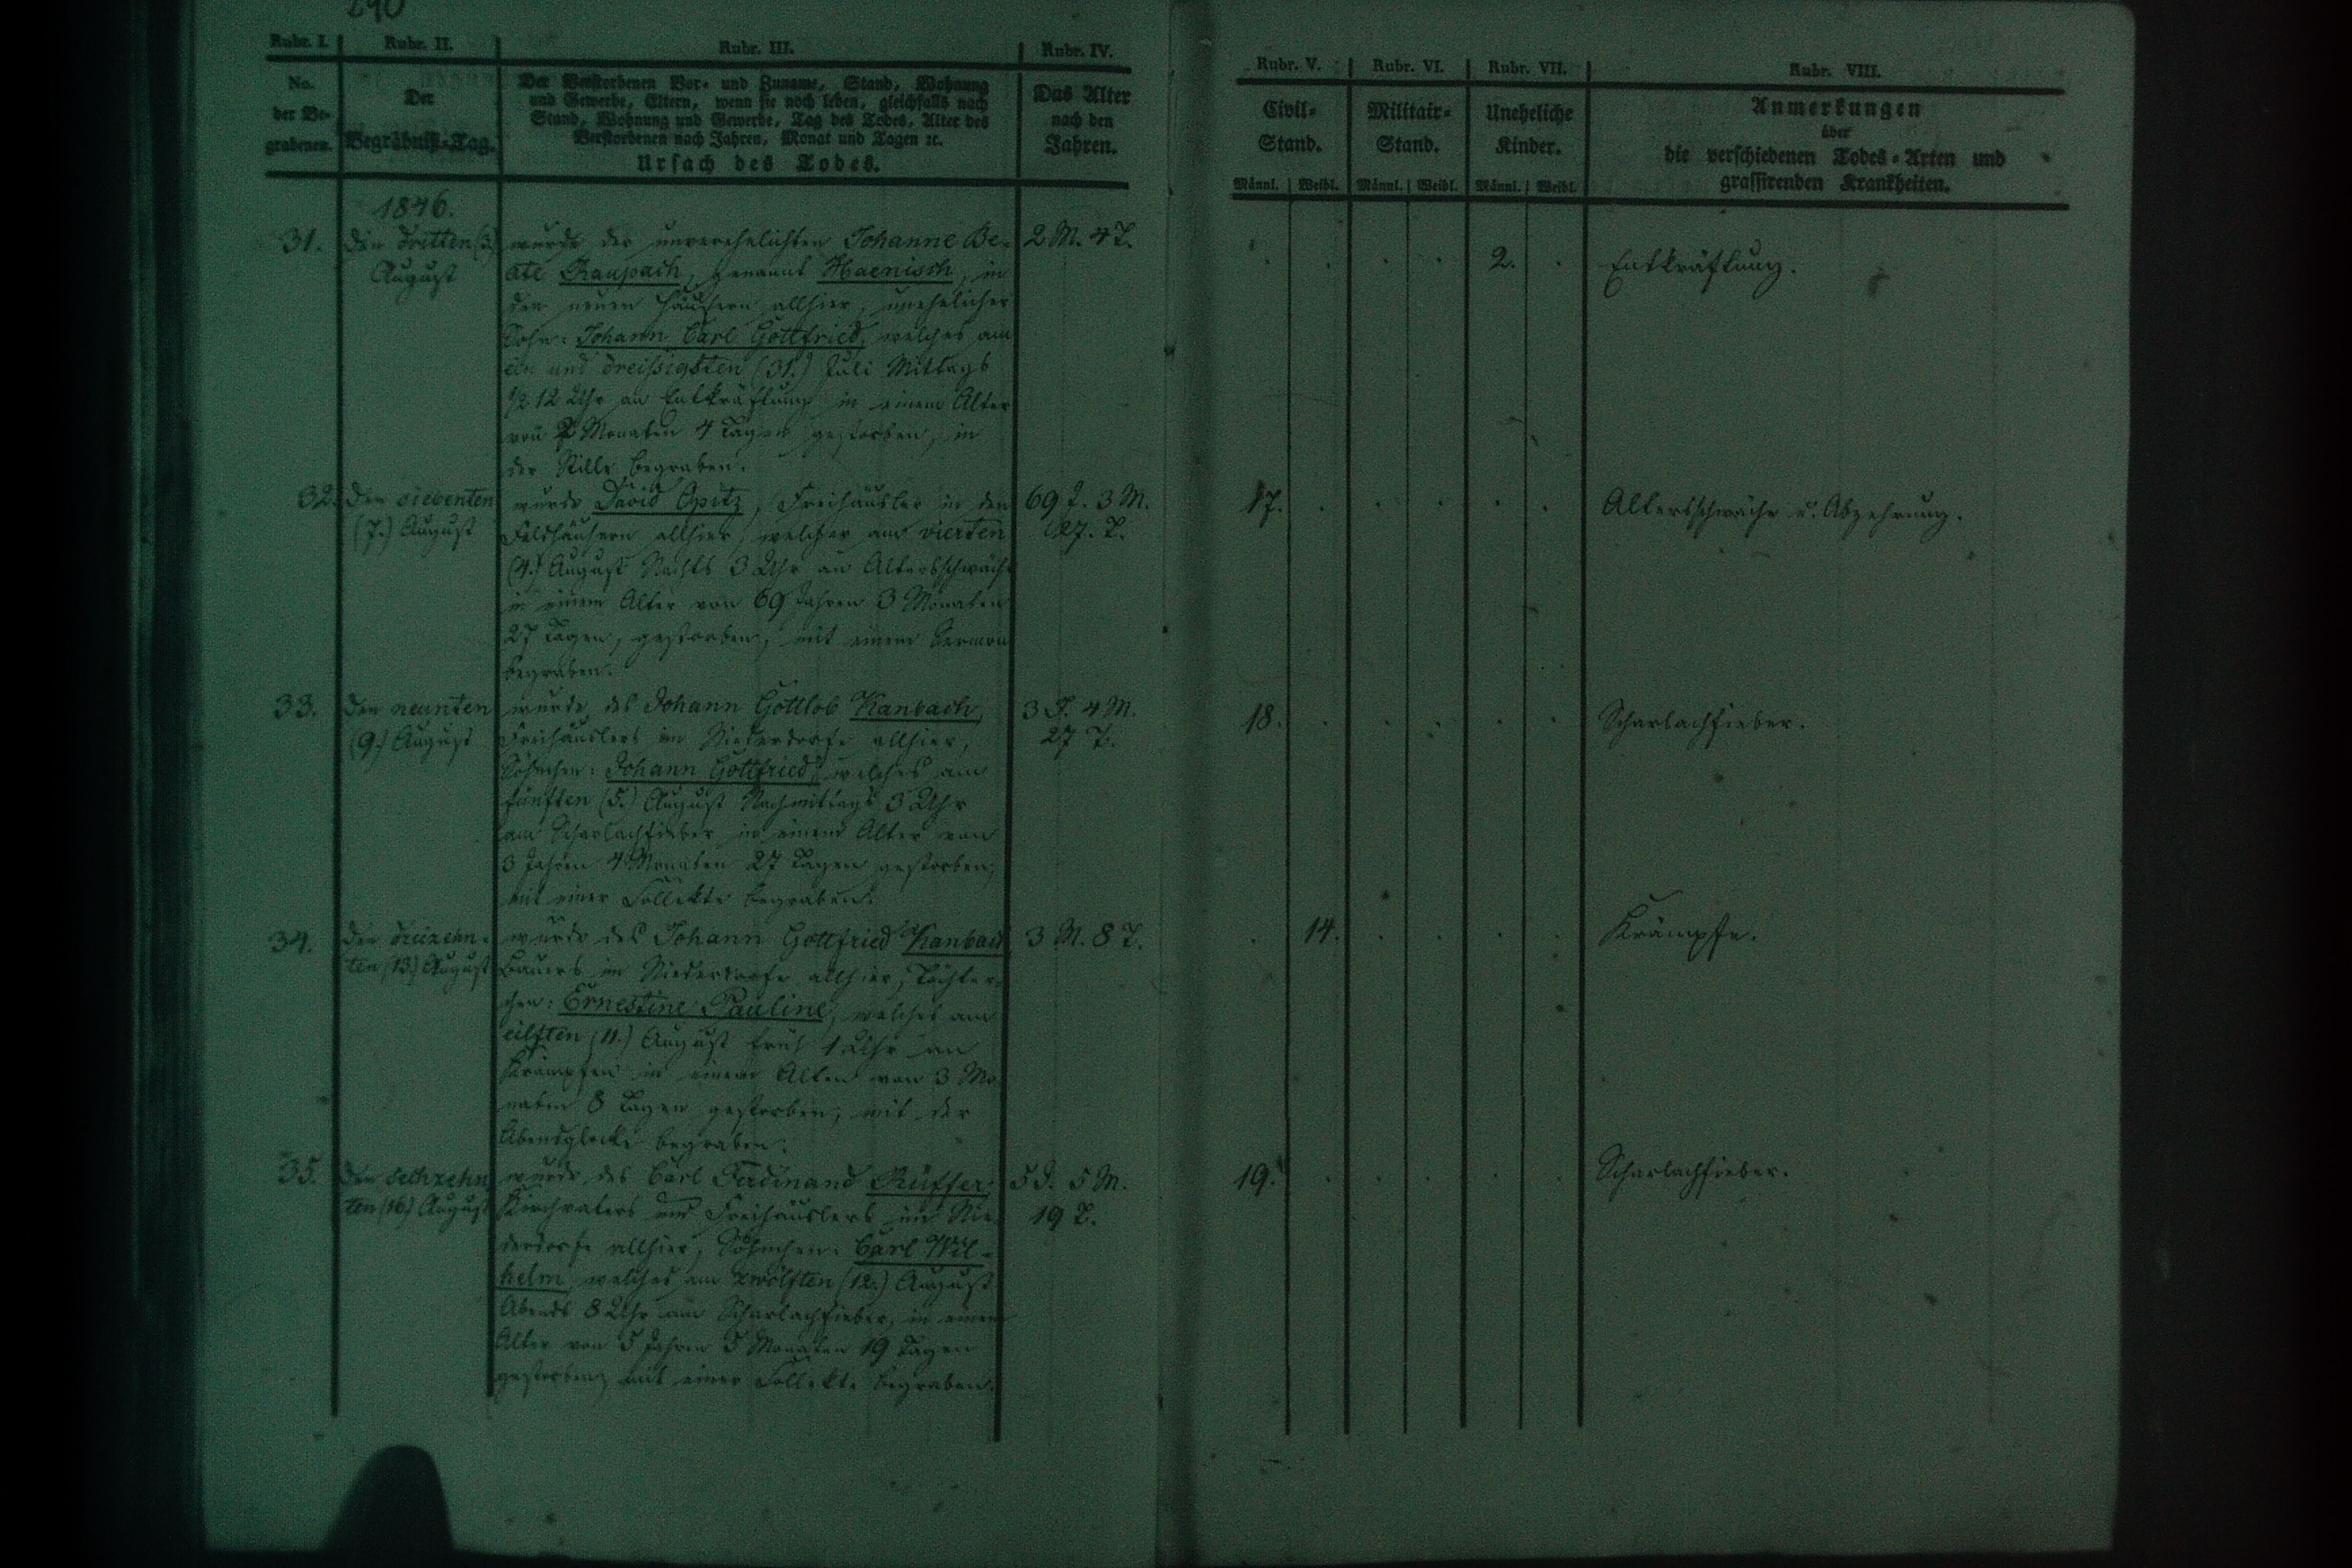 290
Rubr. I. Rubr. II. Rubr. III. Rubr. IV.
No. der Begrabenen.
Der Begräbniß-Tag.
Der Verstorbenen Vor- und Zuname, Stand, Wohnung
und Gewerbe, Eltern, wenn sie noch leben, gleichfalls nach
Stand, Wohnung und Gewerbe, Tag des Todes, Alter des
Verstorbenen nach Jahren, Monat und Tagen ꝛc.
Ursach des Todes.
Das Alter
nach den
Jahren.
1846.
31. den dritten (3.)
August
wurde der unverehelichten Johanne Be-
ate Raupach, genannt Haenisch, in
den neuen Häusern allhier, unehelicher
Sohn: Johann Carl Gottfried, welches am
ein und dreißigsten (31.) Juli Mittags
1/2 12 Uhr an Entkräftung in einem Alter
von 2 Monaten 4 Tagen gestorben, in
der Stille begraben.
2 M. 4 T.
32. den siebenten
(7.) August
wurde David Opitz, Freihäusler in den
Feldhäusern allhier, welcher am vierten
(4.) August Nachts 3 Uhr an Altersschwäche
in einem Alter von 69 Jahren 3 Monaten
27 Tagen, gestorben, mit einem Sermon
begraben.
69 J. 3 M.
27. T.
33. den neunten
(9.) August
wurde des Johann Gottlob Kanbach,
Freihäuslers im Niederdorfe allhier,
Söhnchen: Johann Gottfried, welches am
fünften (5.) August Nachmittags 3 Uhr
am Scharlachfieber in einem Alter von
3 Jahren 4 Monaten 27 Tagen gestorben,
mit einer Collekte begraben.
3 J. 4 M.
27 T.
34. den dreizehn-
ten (13.) August
wurde des Johann Gottfried Kanbach
Bauers im Niederdorfe allhier, Töchter-
chen: Ernestine Pauline, welches am
eilften (11.) August früh 1 Uhr an
Krämpfen in einem Alter von 3 Mo
naten 8 Tagen gestorben, mit der
Abendglocke begraben.
3 M. 8 T.
35. den sechzehn
ten (16.) August
wurde des Carl Ferdinand Rüffer,
Kirchvaters und Freihäuslers im Nie-
derdorfe allhier, Söhnchen: Carl Wil-
helm, welches am zwölften (12.) August
Abends 8 Uhr am Scharlachfieber, in einem
Alter von 5 Jahren 5 Monaten 19 Tagen
gestorben, mit einer Collekte begraben.
5 J. 5 M.
19 T.
Rubr. V. Rubr. VI. Rubr. VII. Rubr. VIII.
Civil-
Stand.
Militair-
Stand.
Uneheliche
Kinder.
Anmerkungen
über
die verschiedenen Todes-Arten und
grassirenden Krankheiten.
Männl. Weibl. Männl. Weibl. Männl. Weibl.
2. Entkräftung.
17. Altersschwäche u. Abzehrung.
18. Scharlachfieber.
14. Krämpfe.
19. Scharlachfieber.